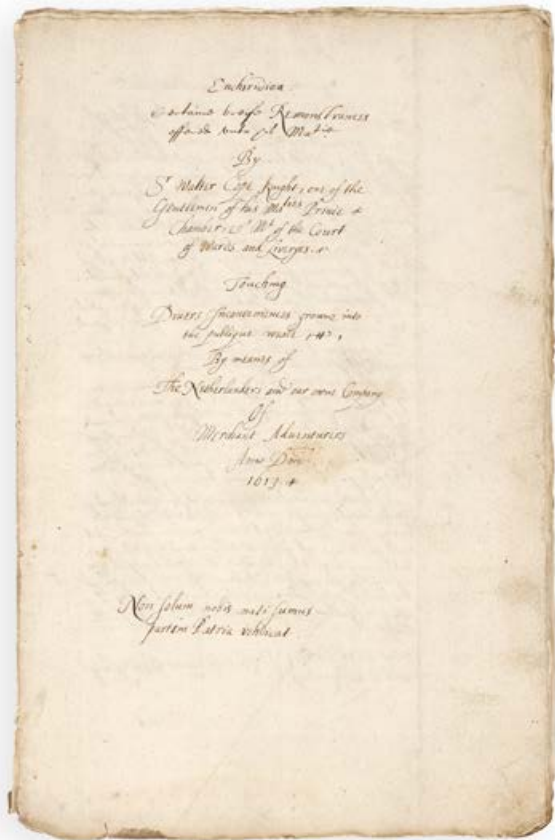 Enchiridion
Certaine breife Remonstrances
offered unto his Matie
By
Sr Walter Cope Knight, one of the
Gentlemen of his Maties Privie
Chamber, & Mr of the Court
of Wards and Liveryes.
Touching
Divers Inconveniences growne into
the publique weale
By means of
The Netherlanders and our owne Company
Of
Merchant Adventurers
Anno Dom
1613
Non solum nobis nati sumus
partem Patria vendicat